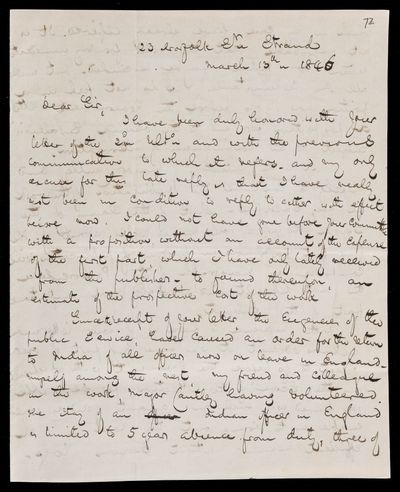 72
23 Norfolk St. Strand
March 13th 1846
Dear Sir,
I have been duly honored with your
letter of the 2n Ulto and with the previous
communication to which it refers - and my only
excuse for this late reply is that I have really
not been in Condition to reply to either with effect
before now. I could not have gone before your Committee
with a proposition without an account of the Expense
of the first part which I have only lately received
from the publisher - to found thereupon, an
estimate of the prospective Cost of the work
Since receipt of your letter, the Exigencies of the
public Service, have caused an order for the return
to India of all officers now on leave in England -
myself among the rest, my friend and Colleague
in the work, Major Cautley having volunteered.
The stay of an Indian officer in England
is limited to 5 years absence from duty, three of